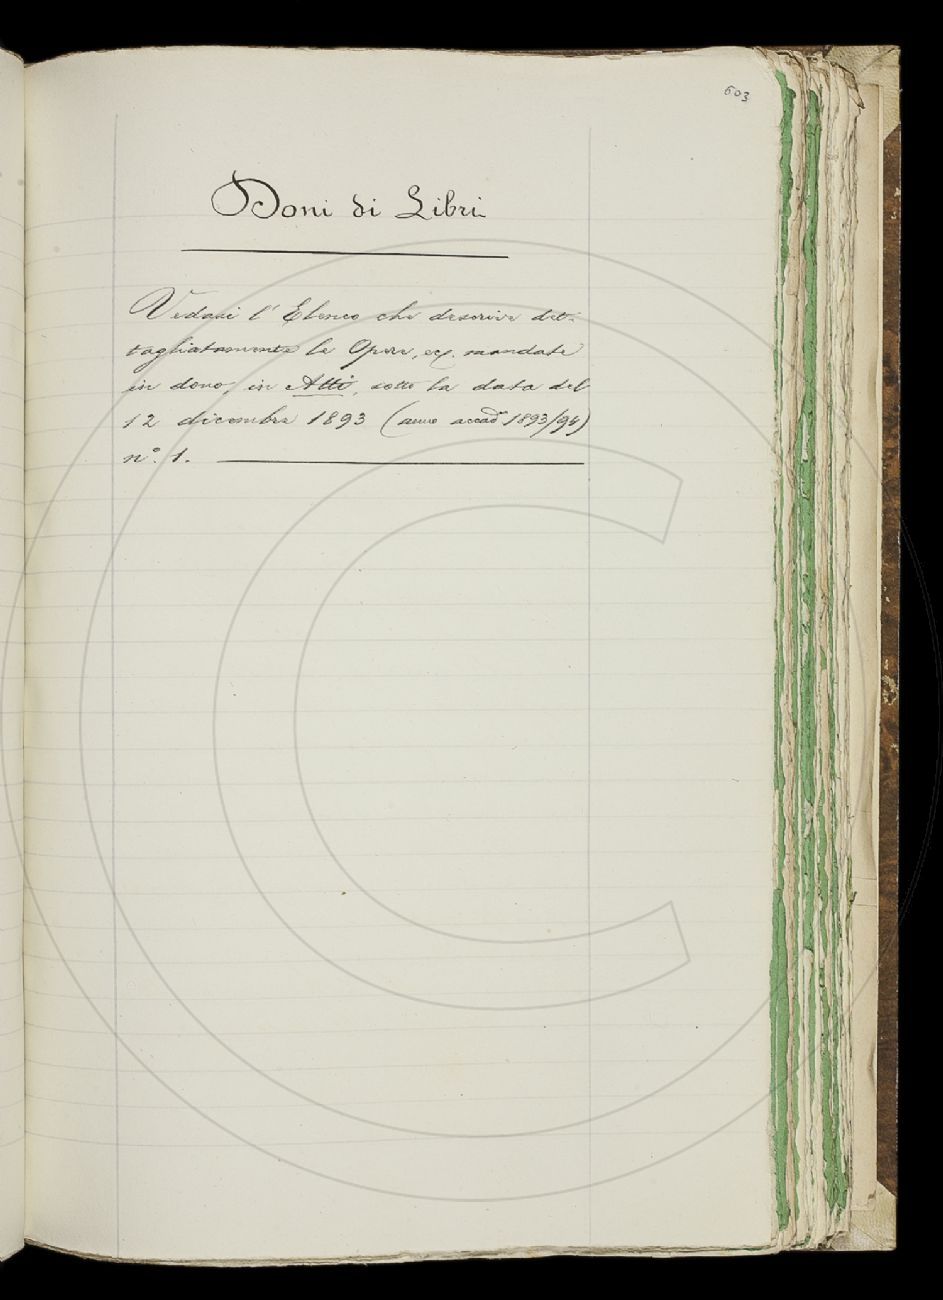 603
Doni di Libri
Vedasi l'Elenco che descrive det-
tagliatamente le Opere, ecc. mandate
in dono, in Atti, sotto la data del
12 dicembre 1893 (anno accad. 1893/94)
n.° 1.